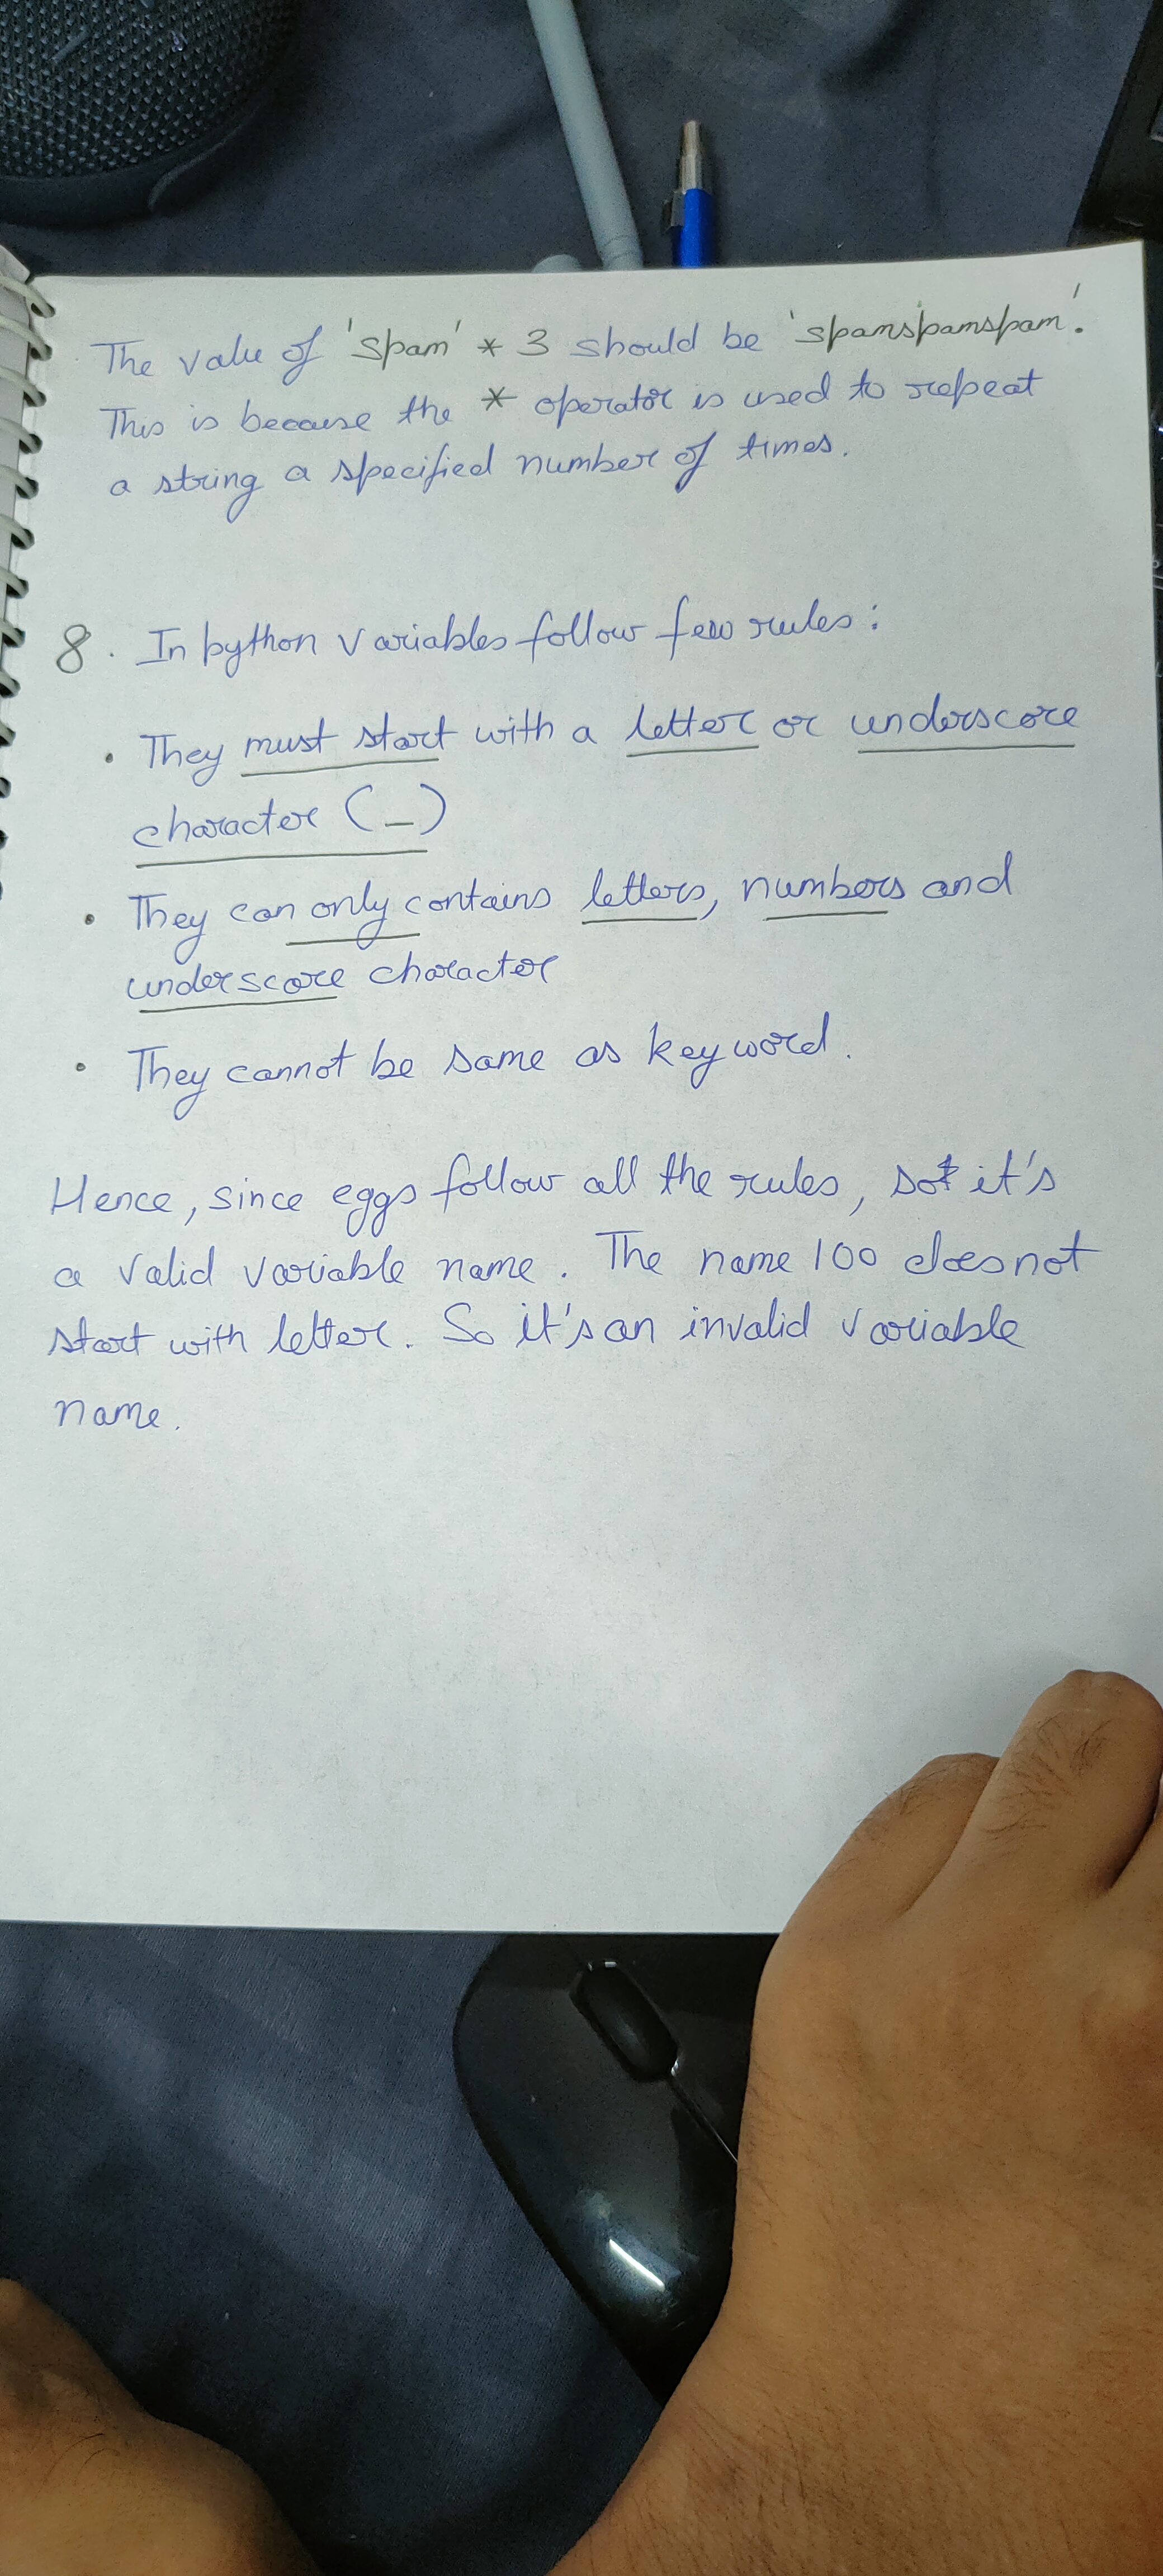 The value of 'spam' * 3 should be 'spamspamspam'.
This is because the * operator is used to repeat
a string a specified number of times.
8. In python variables follow few rules:
• They must start with a letter or underscore
character (_)
• They can only contains letters, numbers and
underscore character
• They cannot be same as keyword.
Hence, since eggs follow all the rules, so it's
a valid variable name. The name 100 does not
start with letter. So it's an invalid variable
name.